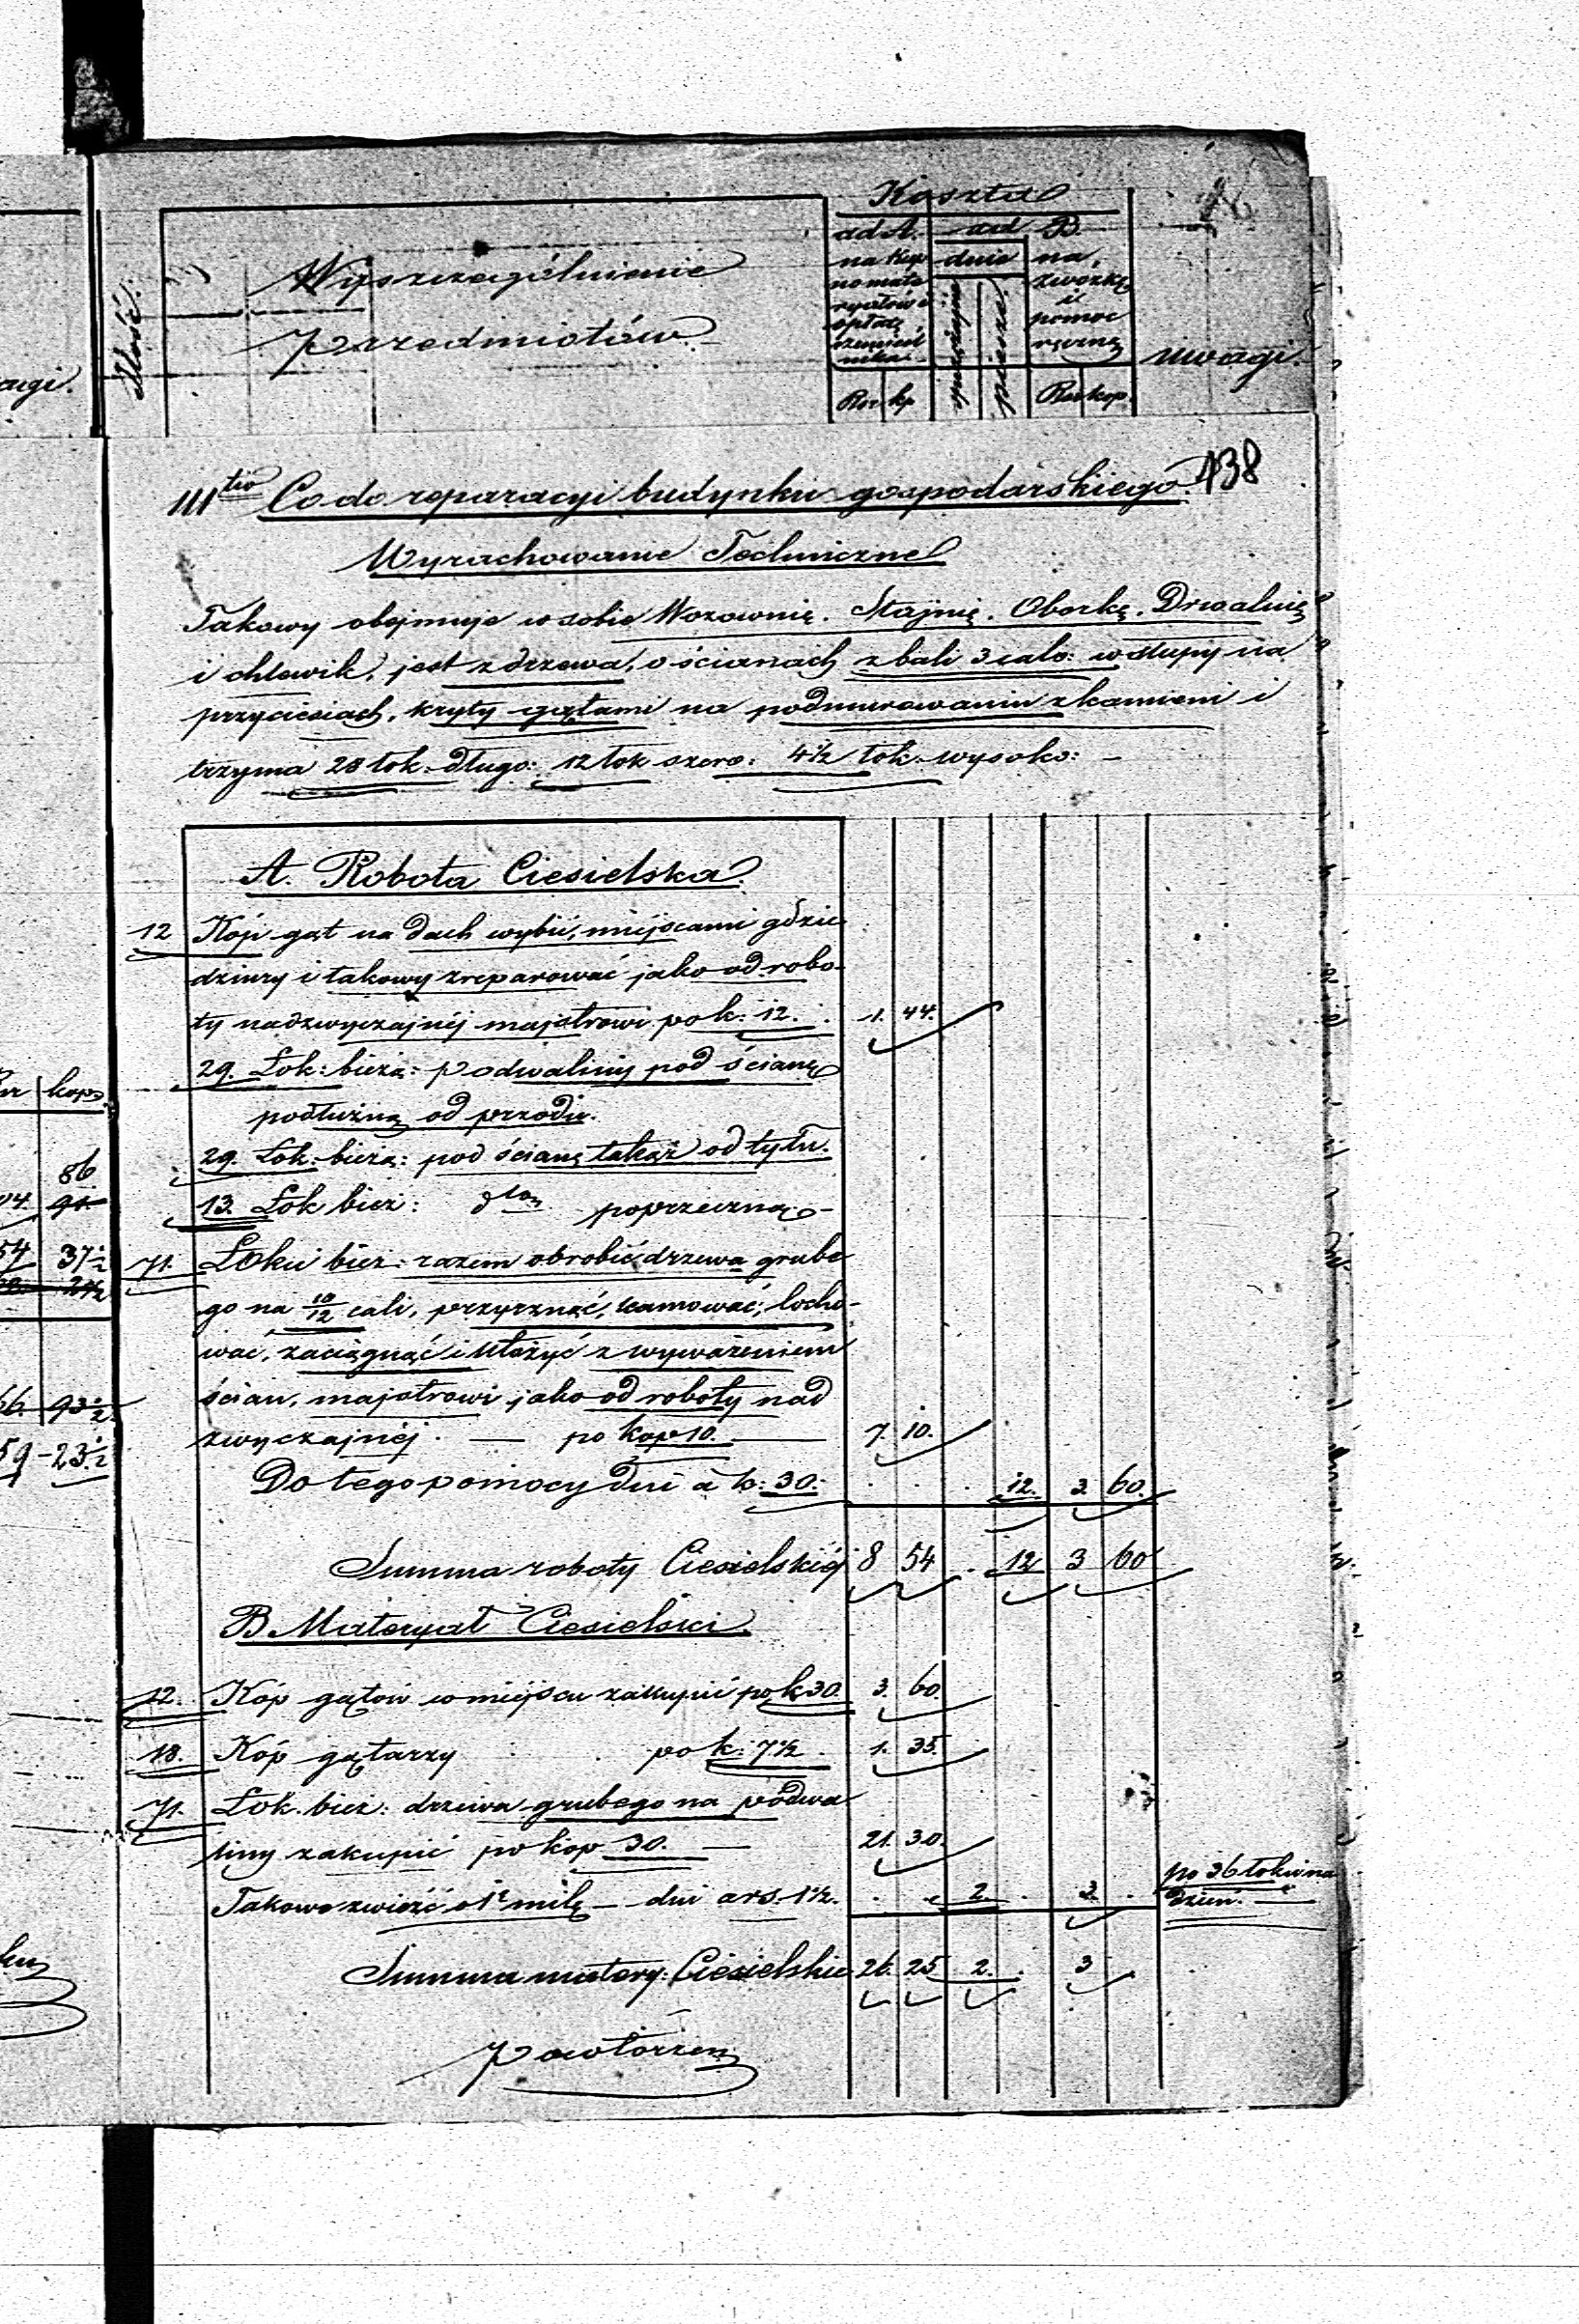 Kosztа
ad A. ad B.
na kup dnie na
no mate zwozkę
ryałów i i
opłatę pomoc
rzemieśl ręczną
nika
sprzężajne piesze
Rsr kp Rsr kop.
Ilość.
Wyszczególnienie
Przedmiotów.
Uwagi.
438
III tio Co do reparacyi budynku gospodarskiego.
Wyrachowanie Techniczne
Takowy obejmuje w sobie Wozownię. Stajnię. Oborkę. Drwalnię
i chlewik, jest z drzewa, o ścianach z bali 3 calo: w słupy na
przyciesiach, kryty gątami na podmurowaniu z kamieni i
trzyma 28 łok. długo: 12 łok szero: 4½ łok. wysoko: —
A. Robota Ciesielska.
12 Kóp gąt na dach wybić, miejscami gdzie
dziury i takowy zreparować jako od robo-
ty nadzwyczajnéj majstrowi po k: 12. 1. 44.
29. Łok: bieżą: podwaliny pod ścianę
podłużną od przodu.
29. Łok: bieżą: pod ścianę takąż od tyłu.
13. Łok bież: dto poprzeczną —
71. Łokci bież: razem obrobić drzewa grube
go na 10/12 cali, przyrznąć, kamować, locho-
wać, zaciągnąć i ułożyć z wyważeniem
ścian, majstrowi jako od roboty nad
zwyczajnéj. — po kop 10. — 7. 10.
Do tego pomocy dni à k: 30. 12. 3. 60.
Summa roboty Ciesielskiéj 8 54 12 3 60
B. Materyał Ciesielski.
12. Kóp gątów w miejscu zakupić po k 30. 3. 60
18. Kóp gątarzy po k: 7½. 1. 35.
71. Łok. bież: drzewa grubego na podwa
liny zakupić po kop 30. — 21. 30.
Takowe zwieźć o 1ę milę — dni a rs. 1½. 2. 3. po 36 łokci na
dzień. —
Summa matery: Ciesielskie 26. 25 2. 3
Powtórzen
agi.
kop.
86
54 37½
93½
59 - 23½